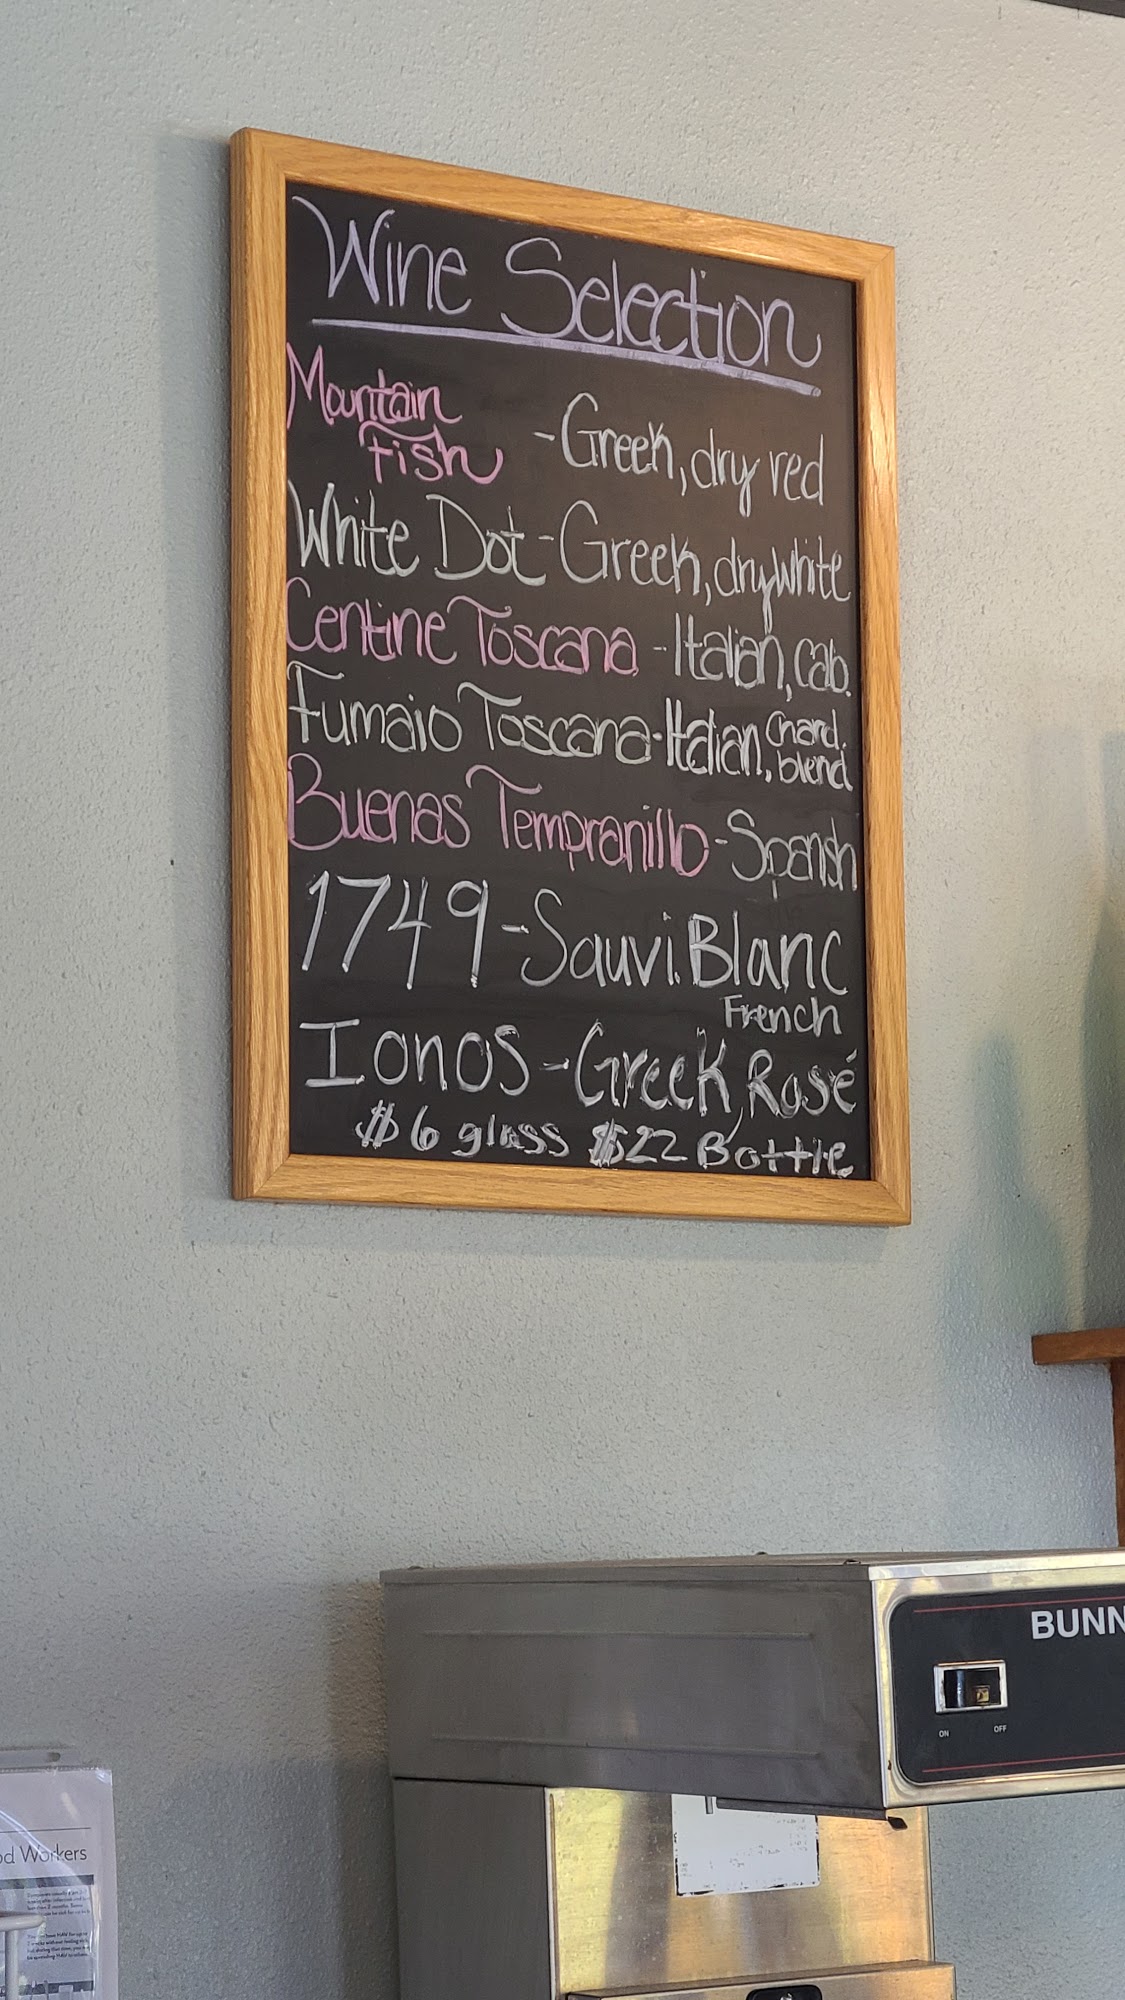 Wine Selection
Mountain
Fish - Greek, dry red
White Dot - Greek, dry white
Centine Toscana - Italian, cab.
Fumaio Toscana - Italian, Chard.
blend
Buenas Tempranillo - Spanish
1749 - Sauvi. Blanc
French
Ionos - Greek, Rosé
$6 glass $22 Bottle
BUNN
ON OFF
Workers